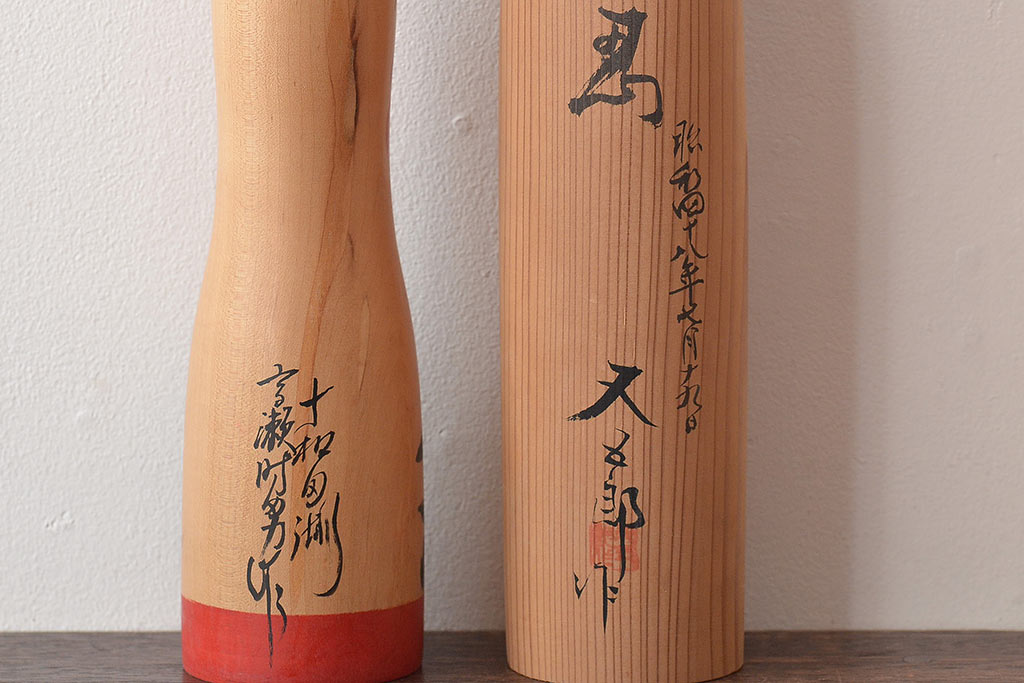 十和田湖
高瀬時男作
昭和四十八年七月十九日
又五郎作